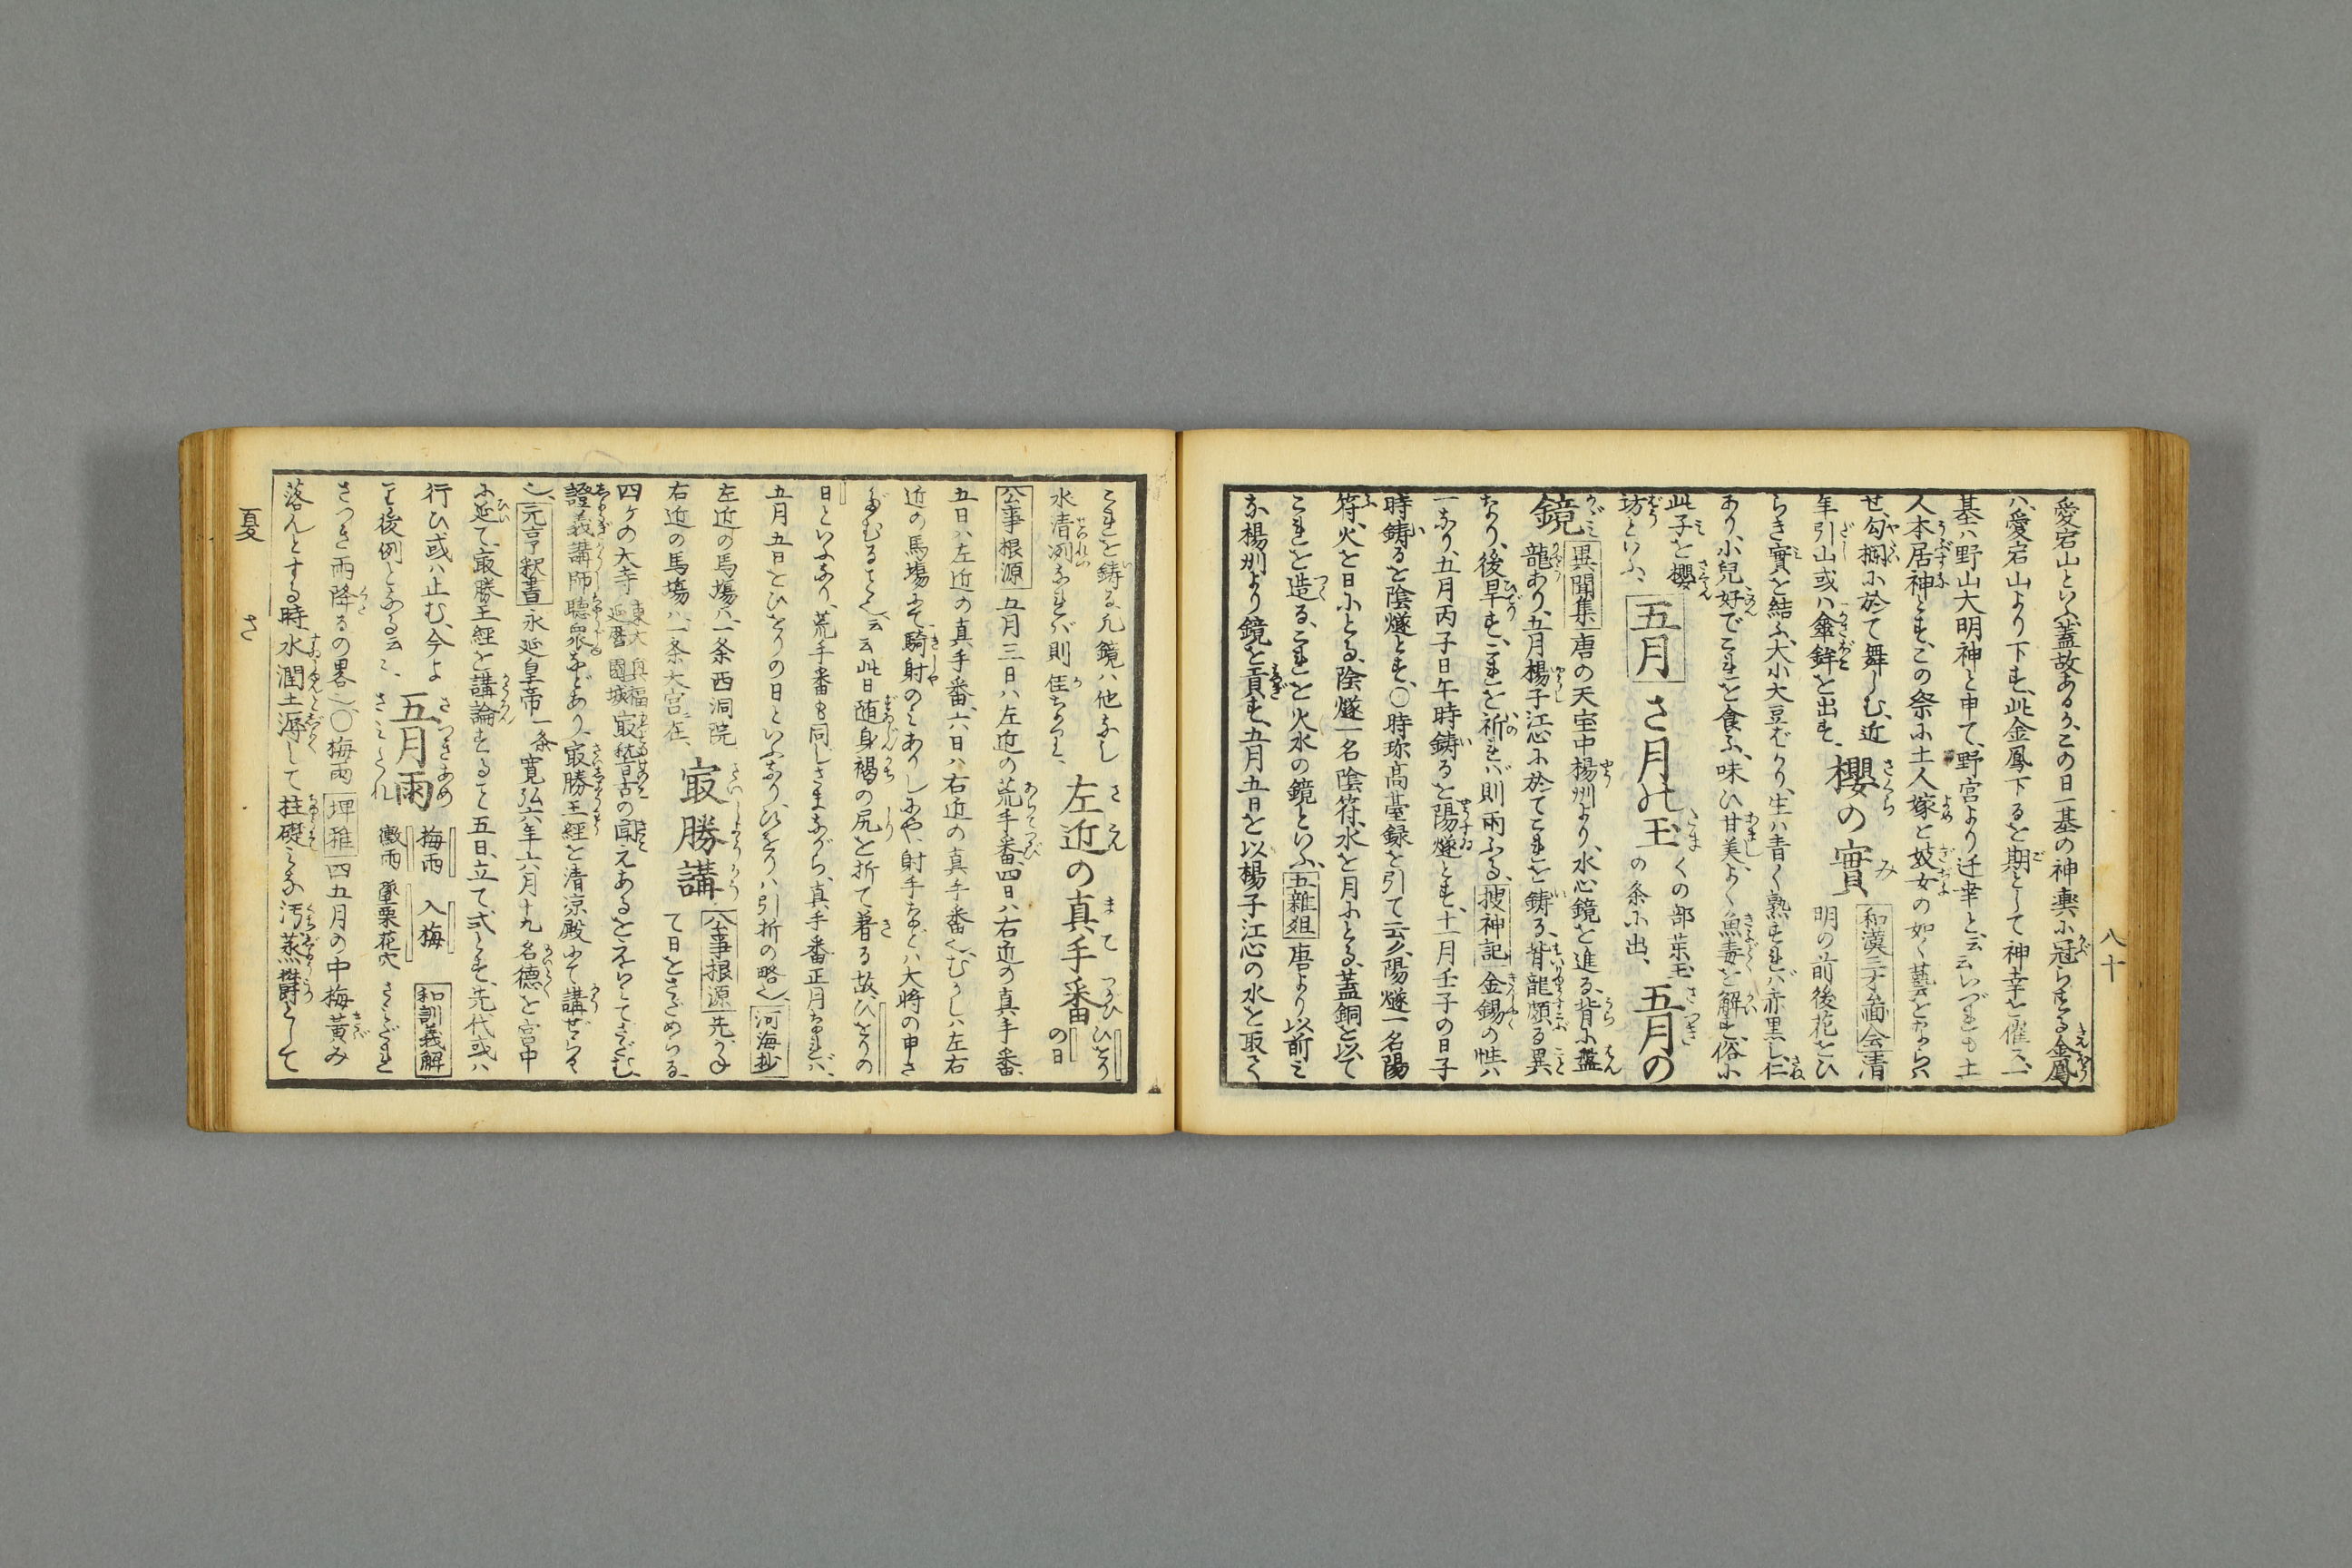 八十
愛宕山といふ蓋故あるか、この日一基の神輿に冠らする金鳳
ハ、愛宕山より下す、此金鳳下るを期として神幸を催ス、一
基ハ野山大明神と申て、野宮より迁幸と、云云いづれも土
人本居神とす、この祭に土人嫁と妓女の如く藝をなら
せ、勾欄に於て舞しむ、近
年引山或ハ傘鉾を出す、
櫻の實
和漢三才圖会
清
明の前後花をひ
らき實を結ふ、大小大豆ばかり、生ハ青く熟すれバ赤黒し、仁
あり、小兒好でこれを食ふ、味ひ甘美、よく魚毒を解す、俗に
此子を櫻
坊といふ、
五月
さ月の玉
くの部藥玉
の条に出、
五月の
鏡
異聞集
唐の天宝中楊州より、水心鏡を進る、背に盤
龍あり、五月楊子江心に於てこれを鋳る、背龍頗る異
なり、後旱す、これを祈れバ則雨ふる、
搜神記
金錫の性ハ
一なり、五月丙子日午時鋳るを陽燧とす、十一月壬子の日子
時鋳るを陰燧とす、〇時珍高臺録を引て云、陽燧一名陽
符、火を日にとる、陰燧一名陰符、水を月にとる、蓋銅を以て
これを造る、これを火水の鏡といふ、
五雜俎
唐より以前ミ
な楊州より鏡を貢す、五月五日を以楊子江心の水を取て
これを鋳る、凢鏡ハ他なし
水清冽なれバ則佳なるミ、
左近の真手番
ひをりの日
公事根源
五月三日ハ左近の荒手番、四日ハ右近の真手番、
五日ハ左近の真手番、六日ハ右近の真手番也、むかしハ左右
近の馬場にて騎射のミありしにや、射手などハ大将の申さ
だむるなり、云云此日随身褐の尻を折て着る故、ひをりの
日といふなり、荒手番も同しさまながら、真手番正月なれバ、
五月五日をひをりの日といふなり、ひをりハ引折の略也、
河海抄
左近の馬場ハ、一条西洞院
右近の馬場ハ、一条大宮在、
㝡勝講
公事根源
先かね
て日をさだめらる、
四ケの大寺
東大 興福
延暦 園城
㝡稽古の聞えあるをえらミてさだむ、
證義講師聽衆などあり、㝡勝王經を清涼殿にて講ぜらる
也、
元亨釈書
永延皇帝
一条
寛弘六年六月十九名德を宮中
に延て、㝡勝王經を講論することと五日、立て式とす、先代或ハ
行ひ或ハ止む、今よ
り後例となる云云、
五月雨
梅雨
入梅
黴雨
墜栗花穴
さみだれ
和訓義解
さつき雨降るの畧也、〇梅雨
埤雅
四五月の中梅黄み
落んとする時、水潤土溽して柱礎ミな汚、蒸欝として
夏
さ